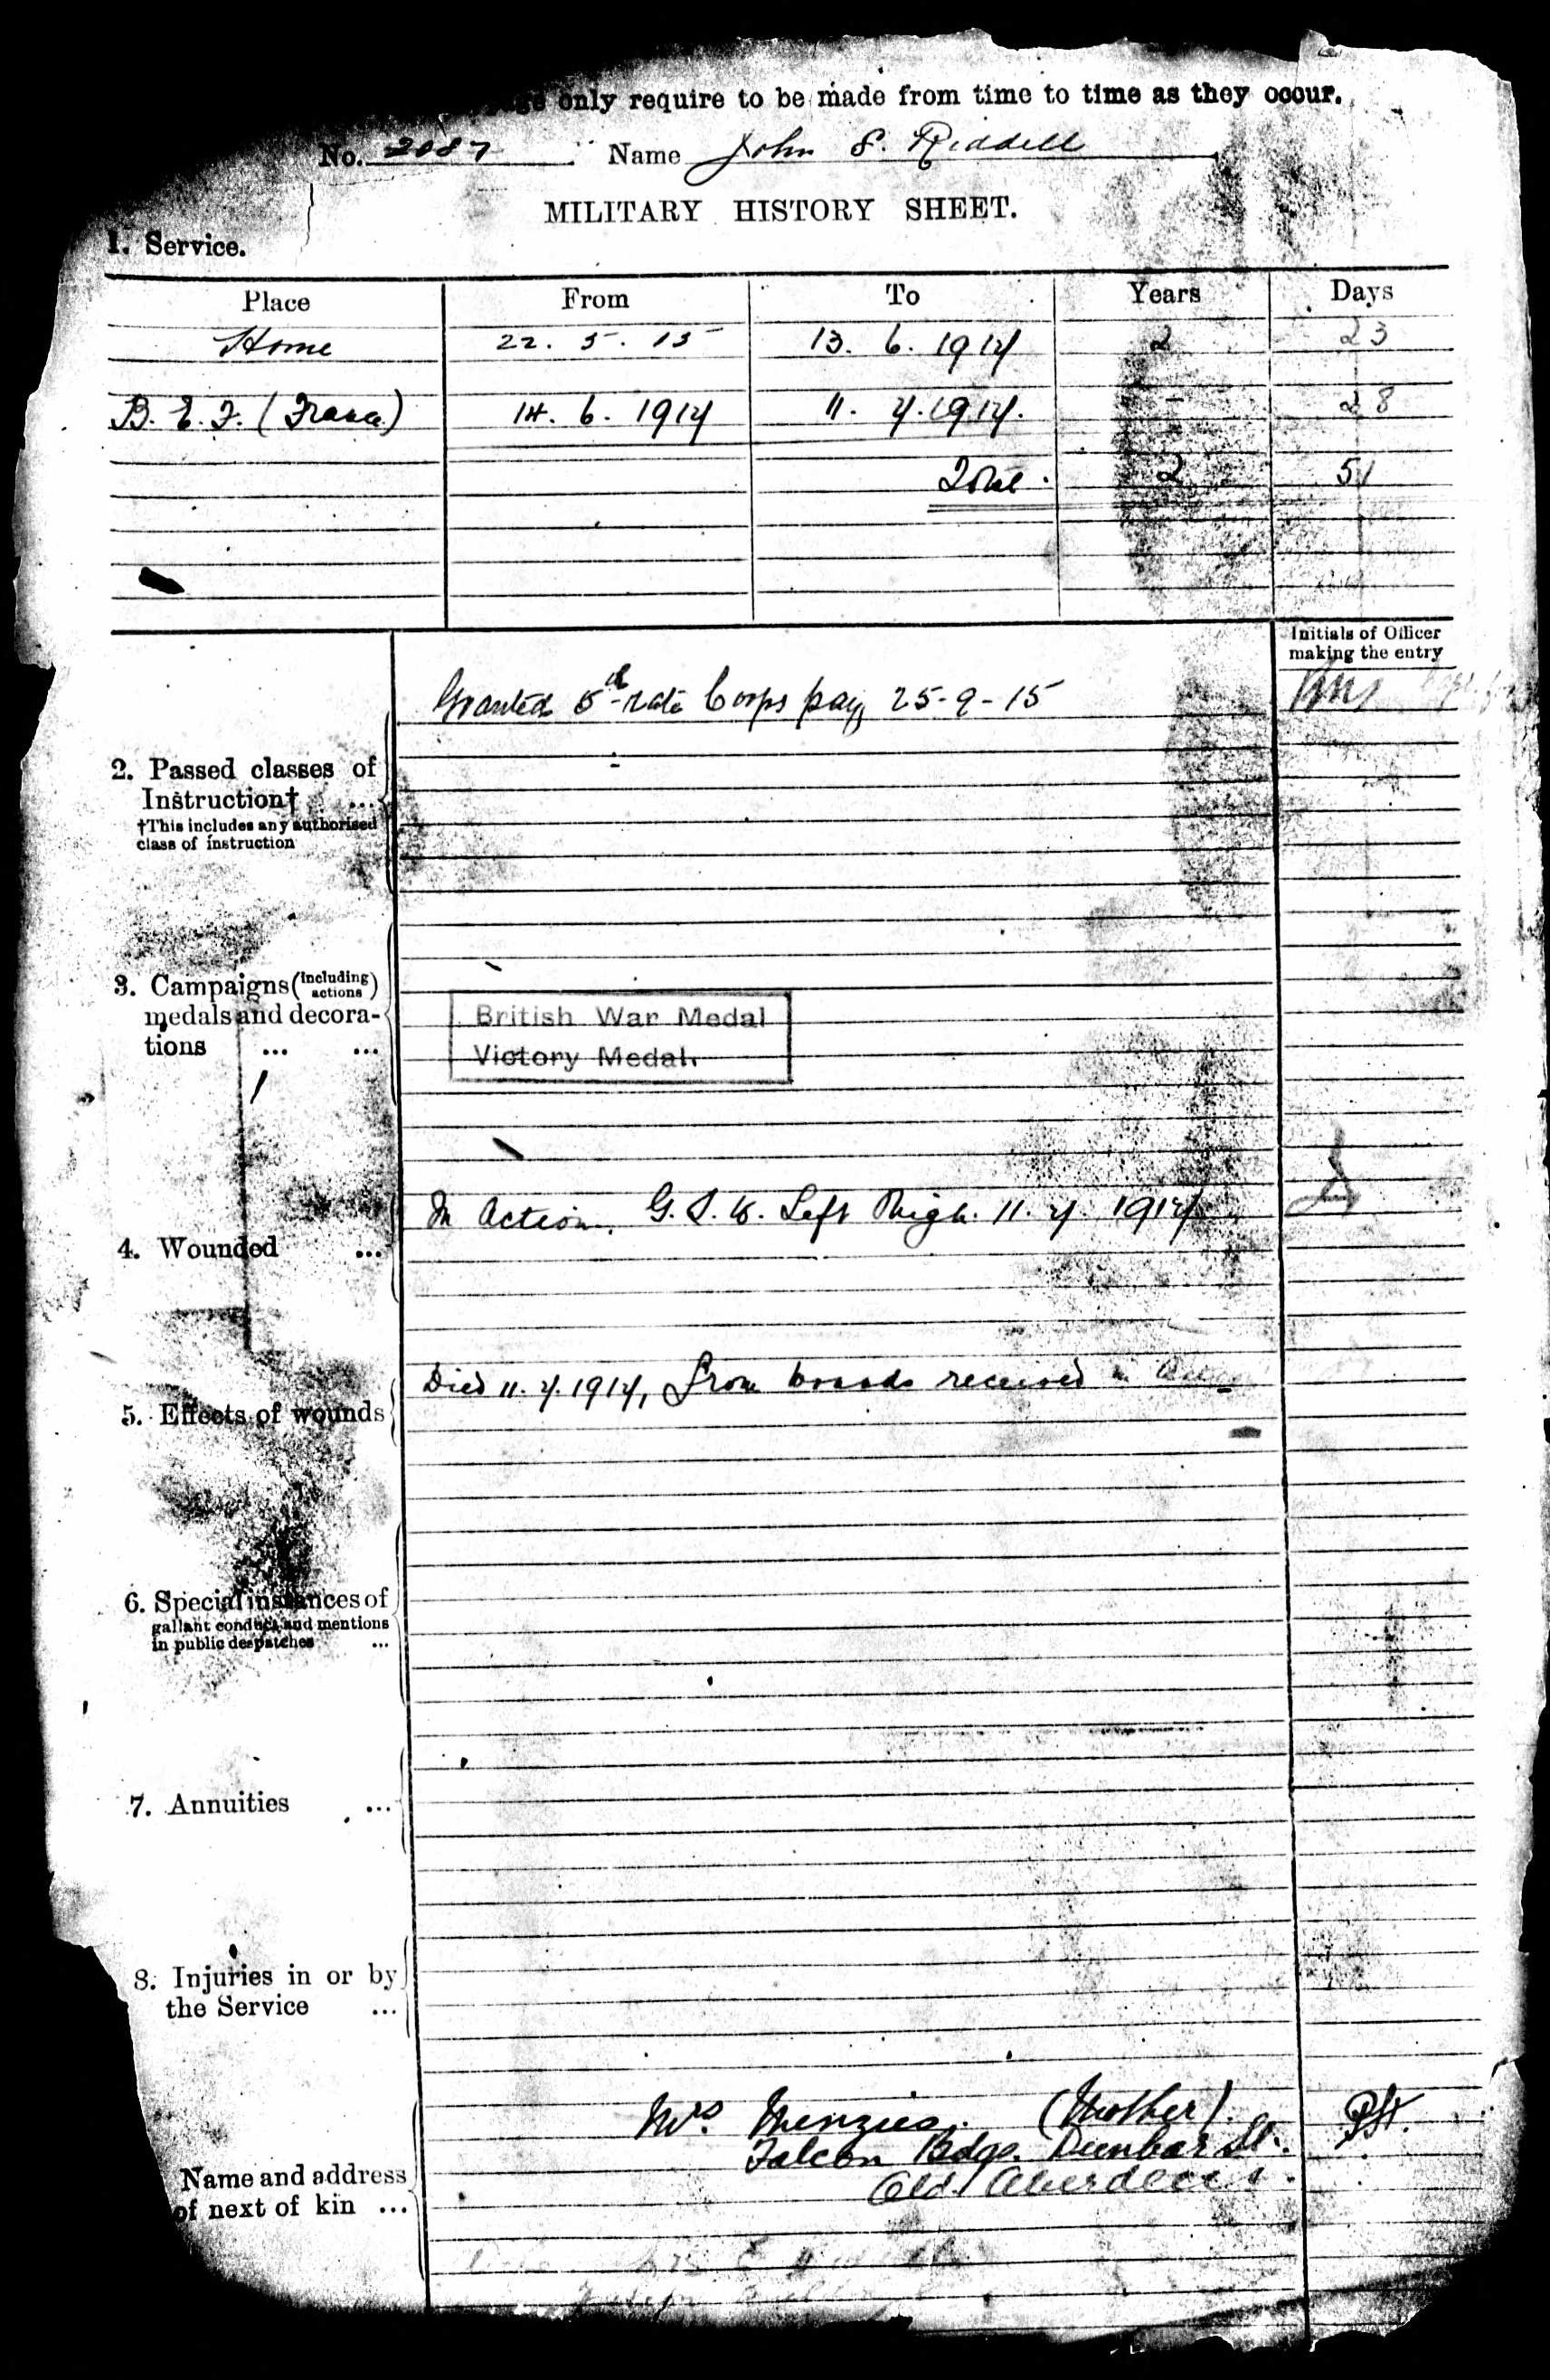 only require to be made from time to time as they occur.
No. 2087 Name John S. Riddell
MILITARY HISTORY SHEET.
1. Service.
Place From To Years Days
Home 22. 5. 15 13. 6. 1917 2 23
B. E. F. (France) 14. 6. 1917 11. 7. 1917. - 28
Total. 2 51
Initials of Officer
making the entry
Granted 5th rate Corps pay 25-9-15
2. Passed classes of
Instruction† ...
†This includes any authorised
class of instruction
3. Campaigns (including
actions)
medals and decora-
tions ... ...
British War Medal
Victory Medal.
In Action. G. S. W. Left Thigh. 11. 7. 1917
4. Wounded ...
Died 11. 7. 1917, from wounds received in
5. Effects of wounds
6. Special instances of
gallant conduct and mentions
in public despatches ...
7. Annuities ...
8. Injuries in or by
the Service ...
Mrs Menzies. (Mother).
Falcon Bdgs. Dunbar St.
Old Aberdeen.
Name and address
of next of kin ...